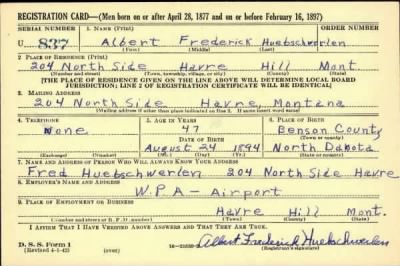 REGISTRATION CARD—(Men born on or after April 28, 1877 and on or before February 16, 1897)
SERIAL NUMBER 1. NAME (Print) ORDER NUMBER
U 837 Albert Frederick Huebschwerlen
(First) (Middle) (Last)
2. PLACE OF RESIDENCE (Print)
204 North Side Havre Hill Mont.
(Number and street) (Town, township, village, or city) (County) (State)
[THE PLACE OF RESIDENCE GIVEN ON THE LINE ABOVE WILL DETERMINE LOCAL BOARD
JURISDICTION; LINE 2 OF REGISTRATION CERTIFICATE WILL BE IDENTICAL]
3. MAILING ADDRESS
204 North Side Havre, Montana
[Mailing address if other than place indicated on line 2. If same insert word same]
4. TELEPHONE 5. AGE IN YEARS 6. PLACE OF BIRTH
None 47 Benson County
DATE OF BIRTH (Town or county)
August 24 1894 North Dakota
(Exchange) (Number) (Mo.) (Day) (Yr.) (State or country)
7. NAME AND ADDRESS OF PERSON WHO WILL ALWAYS KNOW YOUR ADDRESS
Fred Huebschwerlen 204 North Side Havre
8. EMPLOYER'S NAME AND ADDRESS
W.P.A - Airport
9. PLACE OF EMPLOYMENT OR BUSINESS
Havre Hill Mont.
(Number and street or R. F. D. number) (Town) (County) (State)
I AFFIRM THAT I HAVE VERIFIED ABOVE ANSWERS AND THAT THEY ARE TRUE.
D. S. S. Form 1
(Revised 4-1-42) Albert Frederick Huebschwerlen
(Registrant's signature)